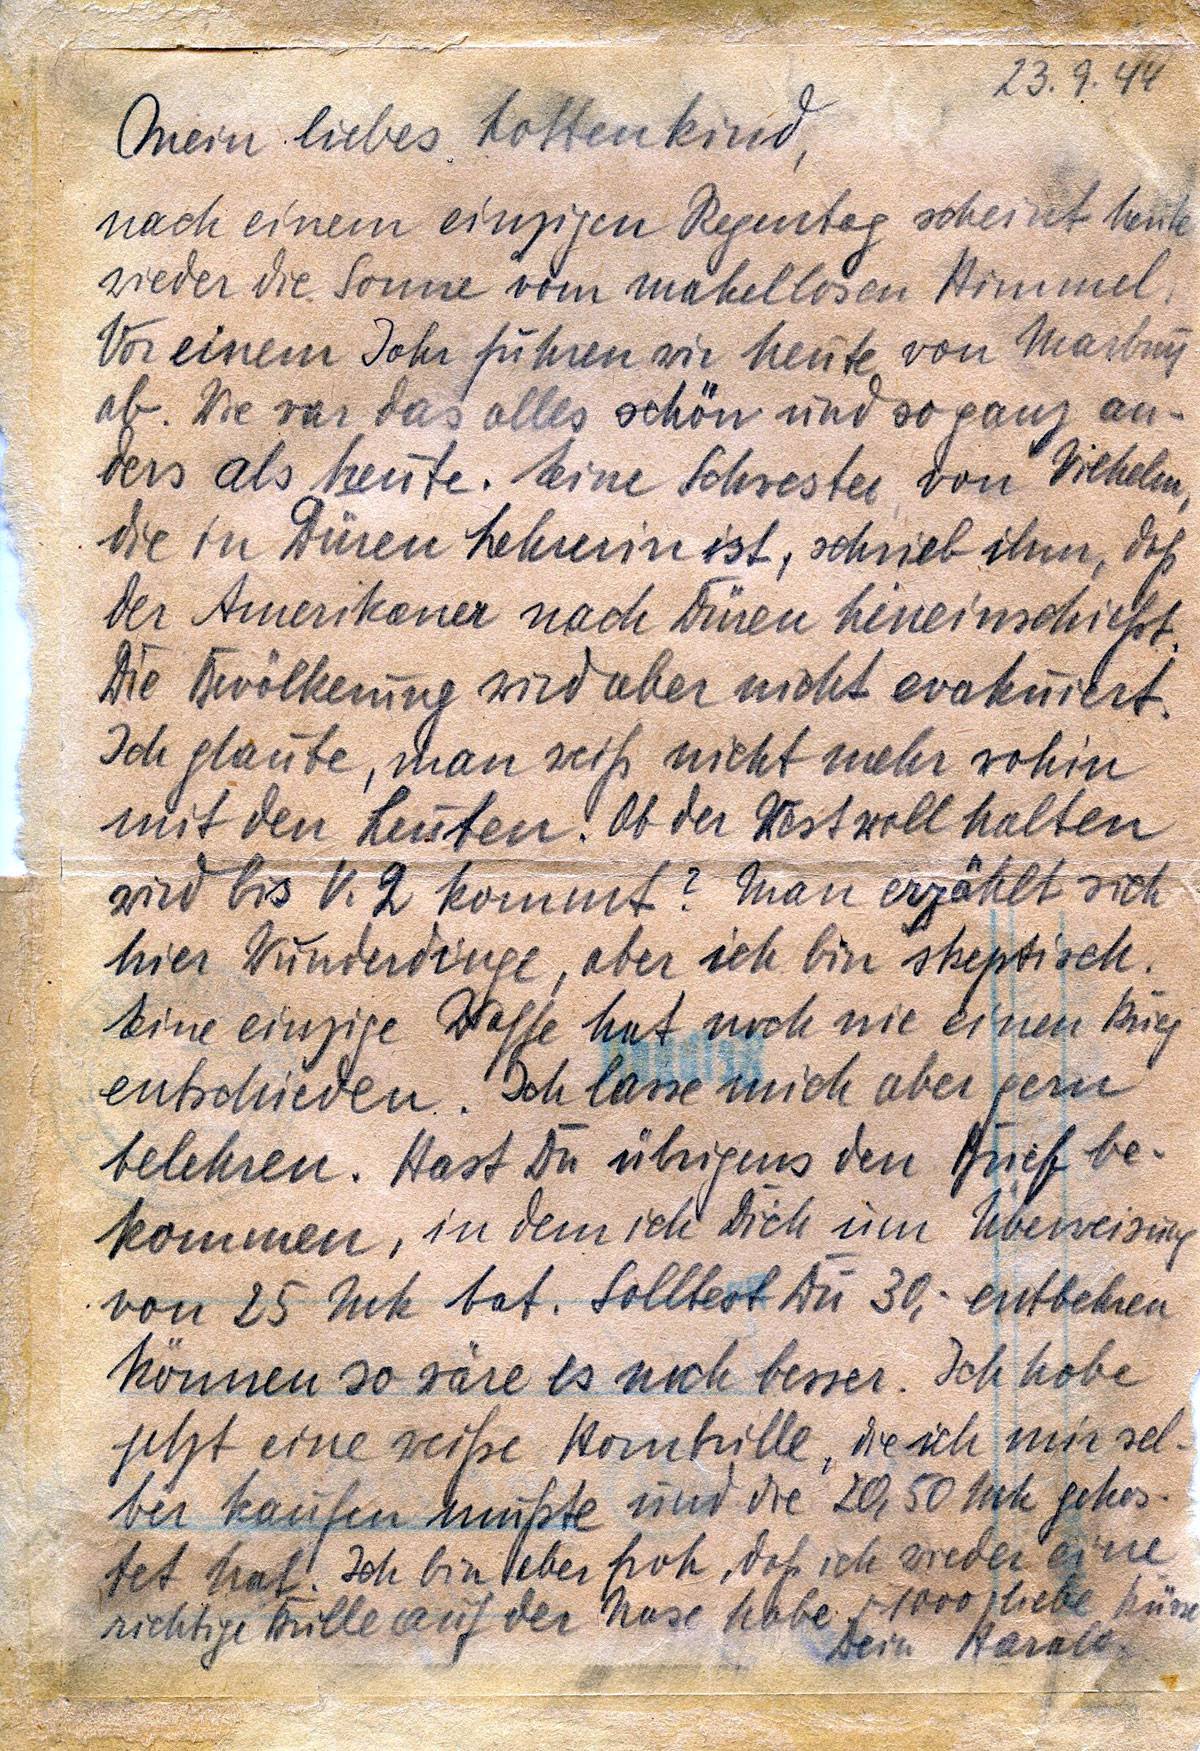 23.9.44
Mein liebes Lottenkind,
nach einem einzigen Regentag scheint heute
wieder die Sonne vom makellosen Himmel.
Vor einem Jahr fuhren wir heute von Marburg
ab. Wie war das alles schön und so ganz an-
ders als heute. Eine Schwester von Wilhelm,
die in Düren Lehrerin ist, schrieb ihm, daß
der Amerikaner nach Düren hineinschießt.
Die Bevölkerung wird aber nicht evakuiert.
Ich glaube, man weiß nicht mehr wohin
mit den Leuten. Ob der Westwall halten
wird bis V. 2 kommt? Man erzählt sich
hier Wunderdinge, aber ich bin skeptisch.
Eine einzige Waffe hat noch nie einen Krieg
entschieden. Ich lasse mich aber gern
belehren. Hast Du übrigens den Brief be-
kommen, in dem ich Dich um Überweisung
von 25 Mk bat. Solltest Du 30,- entbehren
können so wäre es noch besser. Ich habe
jetzt eine weiße Hornbrille, die ich mir sel-
ber kaufen mußte und die 20,50 Mk gekos-
tet hat. Ich bin aber froh, daß ich wieder eine
richtige Brille auf der Nase habe. 1000 liebe Küsse
Dein Harald.